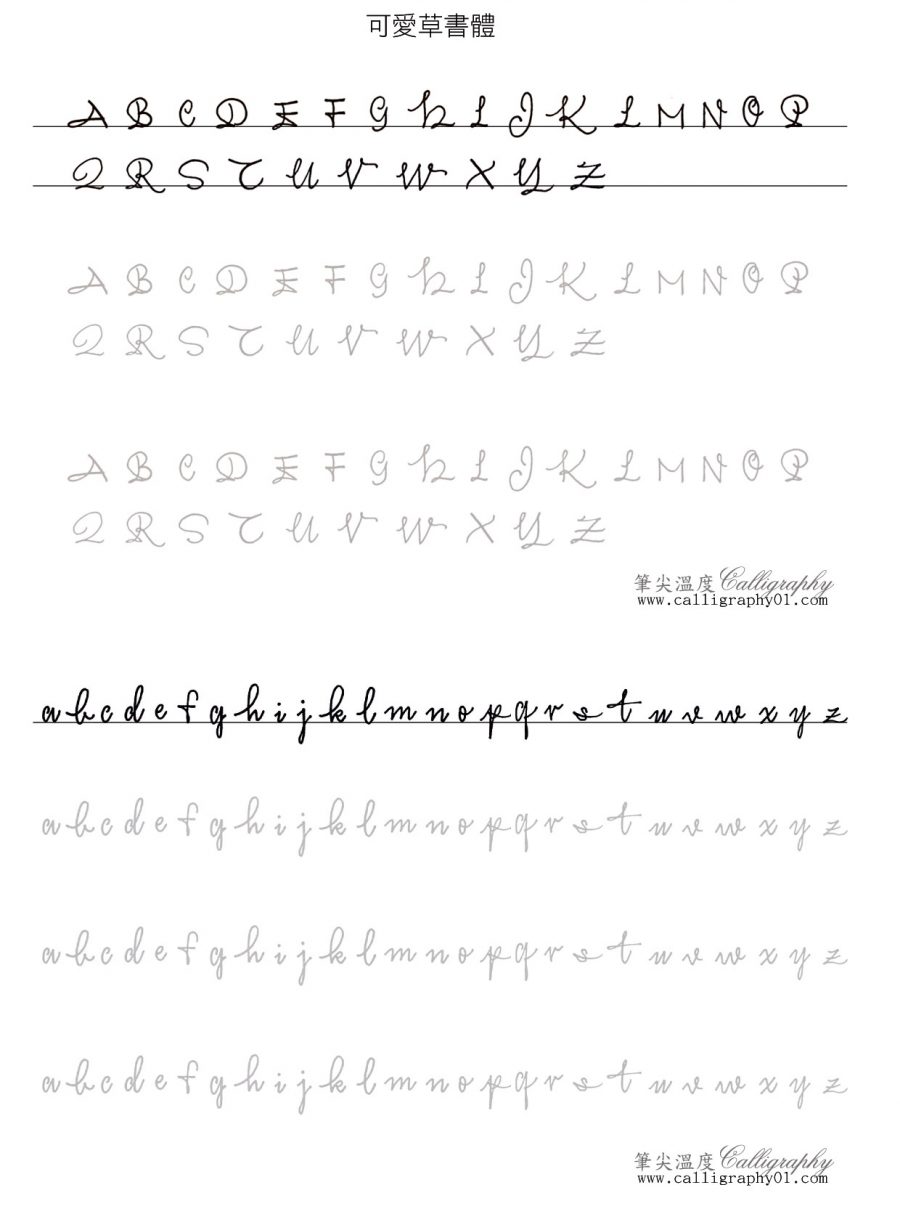 可愛草書體
A B C D E F G H I J K L M N O P
Q R S T U V W X Y Z
A B C D E F G H I J K L M N O P
Q R S T U V W X Y Z
A B C D E F G H I J K L M N O P
Q R S T U V W X Y Z
筆尖溫度 Calligraphy
www.calligraphy01.com
a b c d e f g h i j k l m n o p q r s t u v w x y z
a b c d e f g h i j k l m n o p q r s t u v w x y z
a b c d e f g h i j k l m n o p q r s t u v w x y z
a b c d e f g h i j k l m n o p q r s t u v w x y z
筆尖溫度 Calligraphy
www.calligraphy01.com